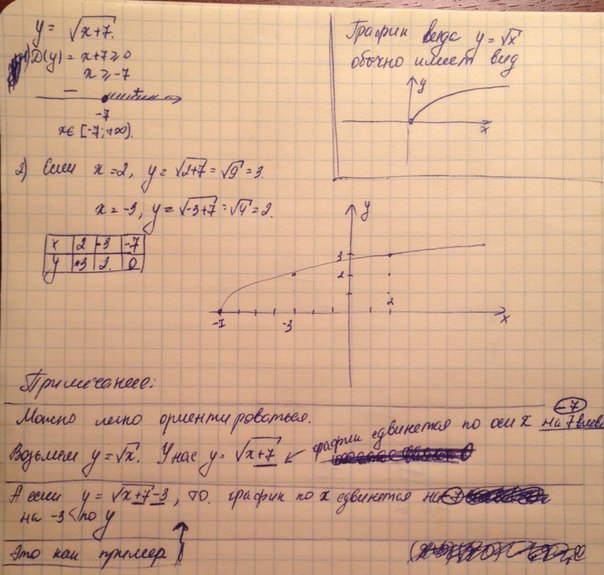 y = √x+7.
1) D(y) = x+7≥0
x ≥ -7
− +
-7
x∈[-7; +∞).
График вида y = √x
обычно имеет вид
y
x
2) Если x = 2, y = √2+7 = √9 = 3.
x = -3, y = √-3+7 = √4 = 2.
x 2 -3 -7
y 3 2 0
y
3
2
-7 -3 2 x
Примечание:
Можно легко ориентироваться.
-7
Возьмем y = √x. У нас y = √x+7 ↙ график сдвинется по оси x на 7 влево
А если y = √x+7-3, то график по x сдвинется на -7
на -3 по y
Это как пример